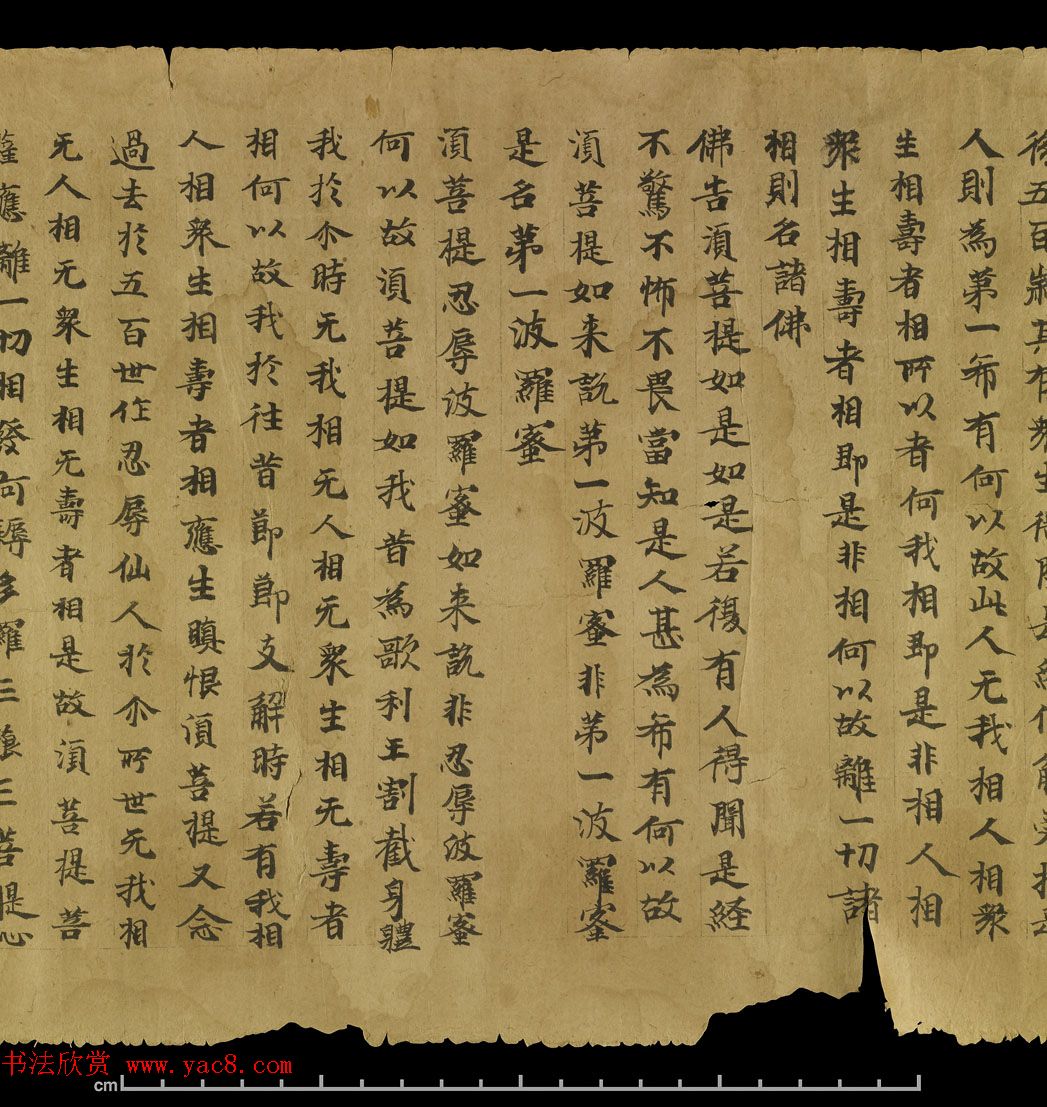 後五百歲其有衆生得聞是經信解受持是
人則為第一希有何以故此人无我相人相衆
生相壽者相所以者何我相即是非相人相
衆生相壽者相即是非相何以故離一切諸
相則名諸佛
佛告湏菩提如是如是若復有人得聞是経
不驚不怖不畏當知是人甚為希有何以故
湏菩提如来說第一波羅蜜非第一波羅蜜
是名第一波羅蜜
湏菩提忍辱波羅蜜如来說非忍辱波羅蜜
何以故湏菩提如我昔為歌利王割截身體
我於尒時无我相无人相无衆生相无壽者
相何以故我於往昔節節支解時若有我相
人相衆生相壽者相應生瞋恨湏菩提又念
過去於五百世作忍辱仙人於尒所世无我相
无人相无衆生相无壽者相是故湏菩提菩
薩應離一切相發阿耨多羅三藐三菩提心
书法欣赏 www.yac8.com
cm